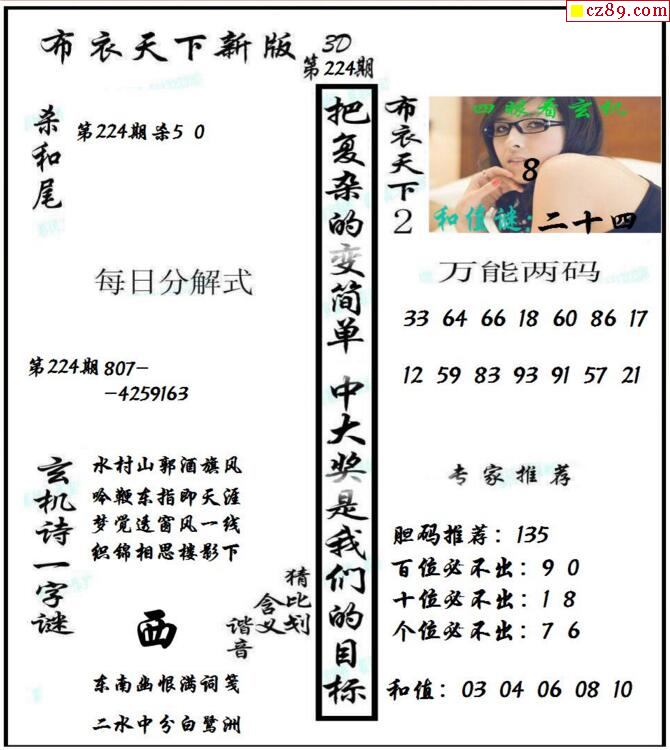 cz89.com
布衣天下新版
3D
第224期
杀和尾
第224期杀5 0
每日分解式
第224期 807-
-4259163
玄机诗一字谜
水村山郭酒旗风
吟鞭东指即天涯
梦觉透窗风一线
织锦相思楼影下
西
猜比划
含义
谐音
东南幽恨满词笺
二水中分白鹭洲
把复杂的变简单 中大奖是我们的目标
布衣天下2
四眼看玄机
8
和值谜:二十四
万能两码
33 64 66 18 60 86 17
12 59 83 93 91 57 21
专家推荐
胆码推荐:135
百位必不出:9 0
十位必不出:1 8
个位必不出:7 6
和值:03 04 06 08 10